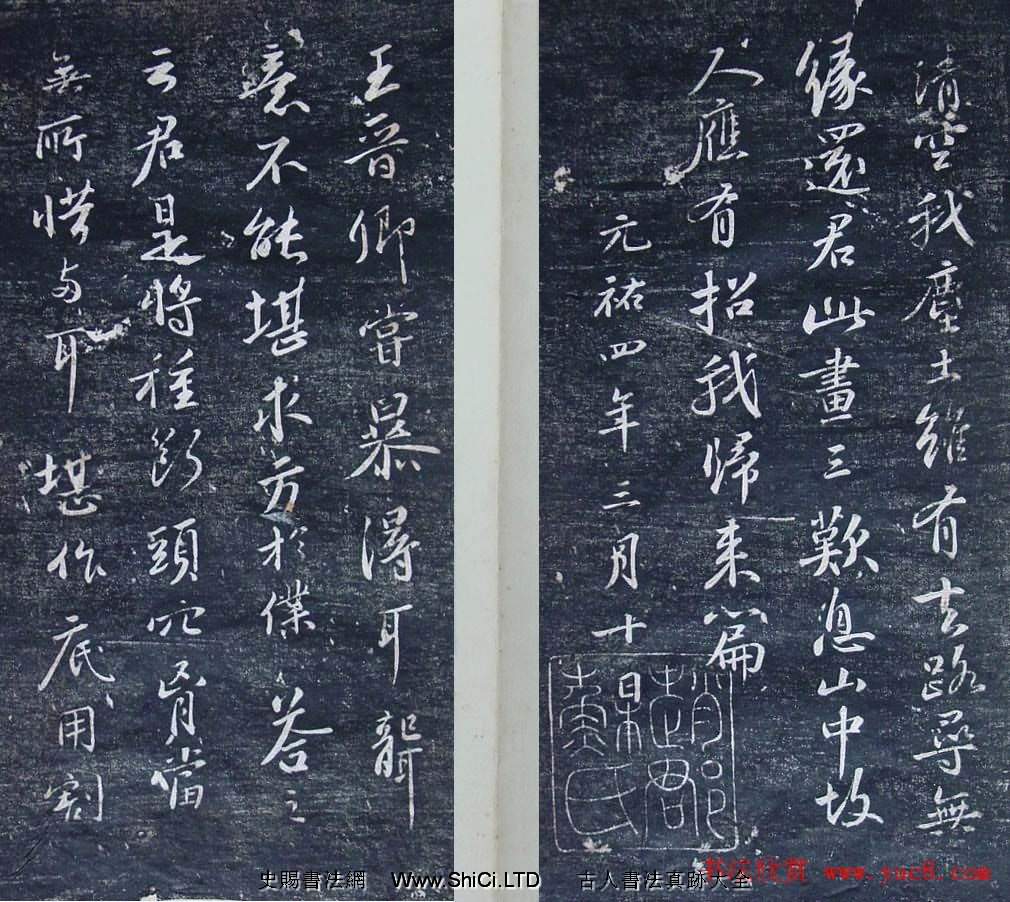 清空我塵土雖有去路尋無
緣還君此畫三歎息山中故
人應有招我歸来篇
元祐四年三月十日
趙郡蘇氏
王晉卿嘗暴得耳聾
意不能堪求方於僕答之
云君是將種斷頭穴胷當
無所惜兩耳堪作底用割
史賜書法網 Www.ShiCi.LTD 古人書法真跡大全
书法欣赏 www.yac8.com